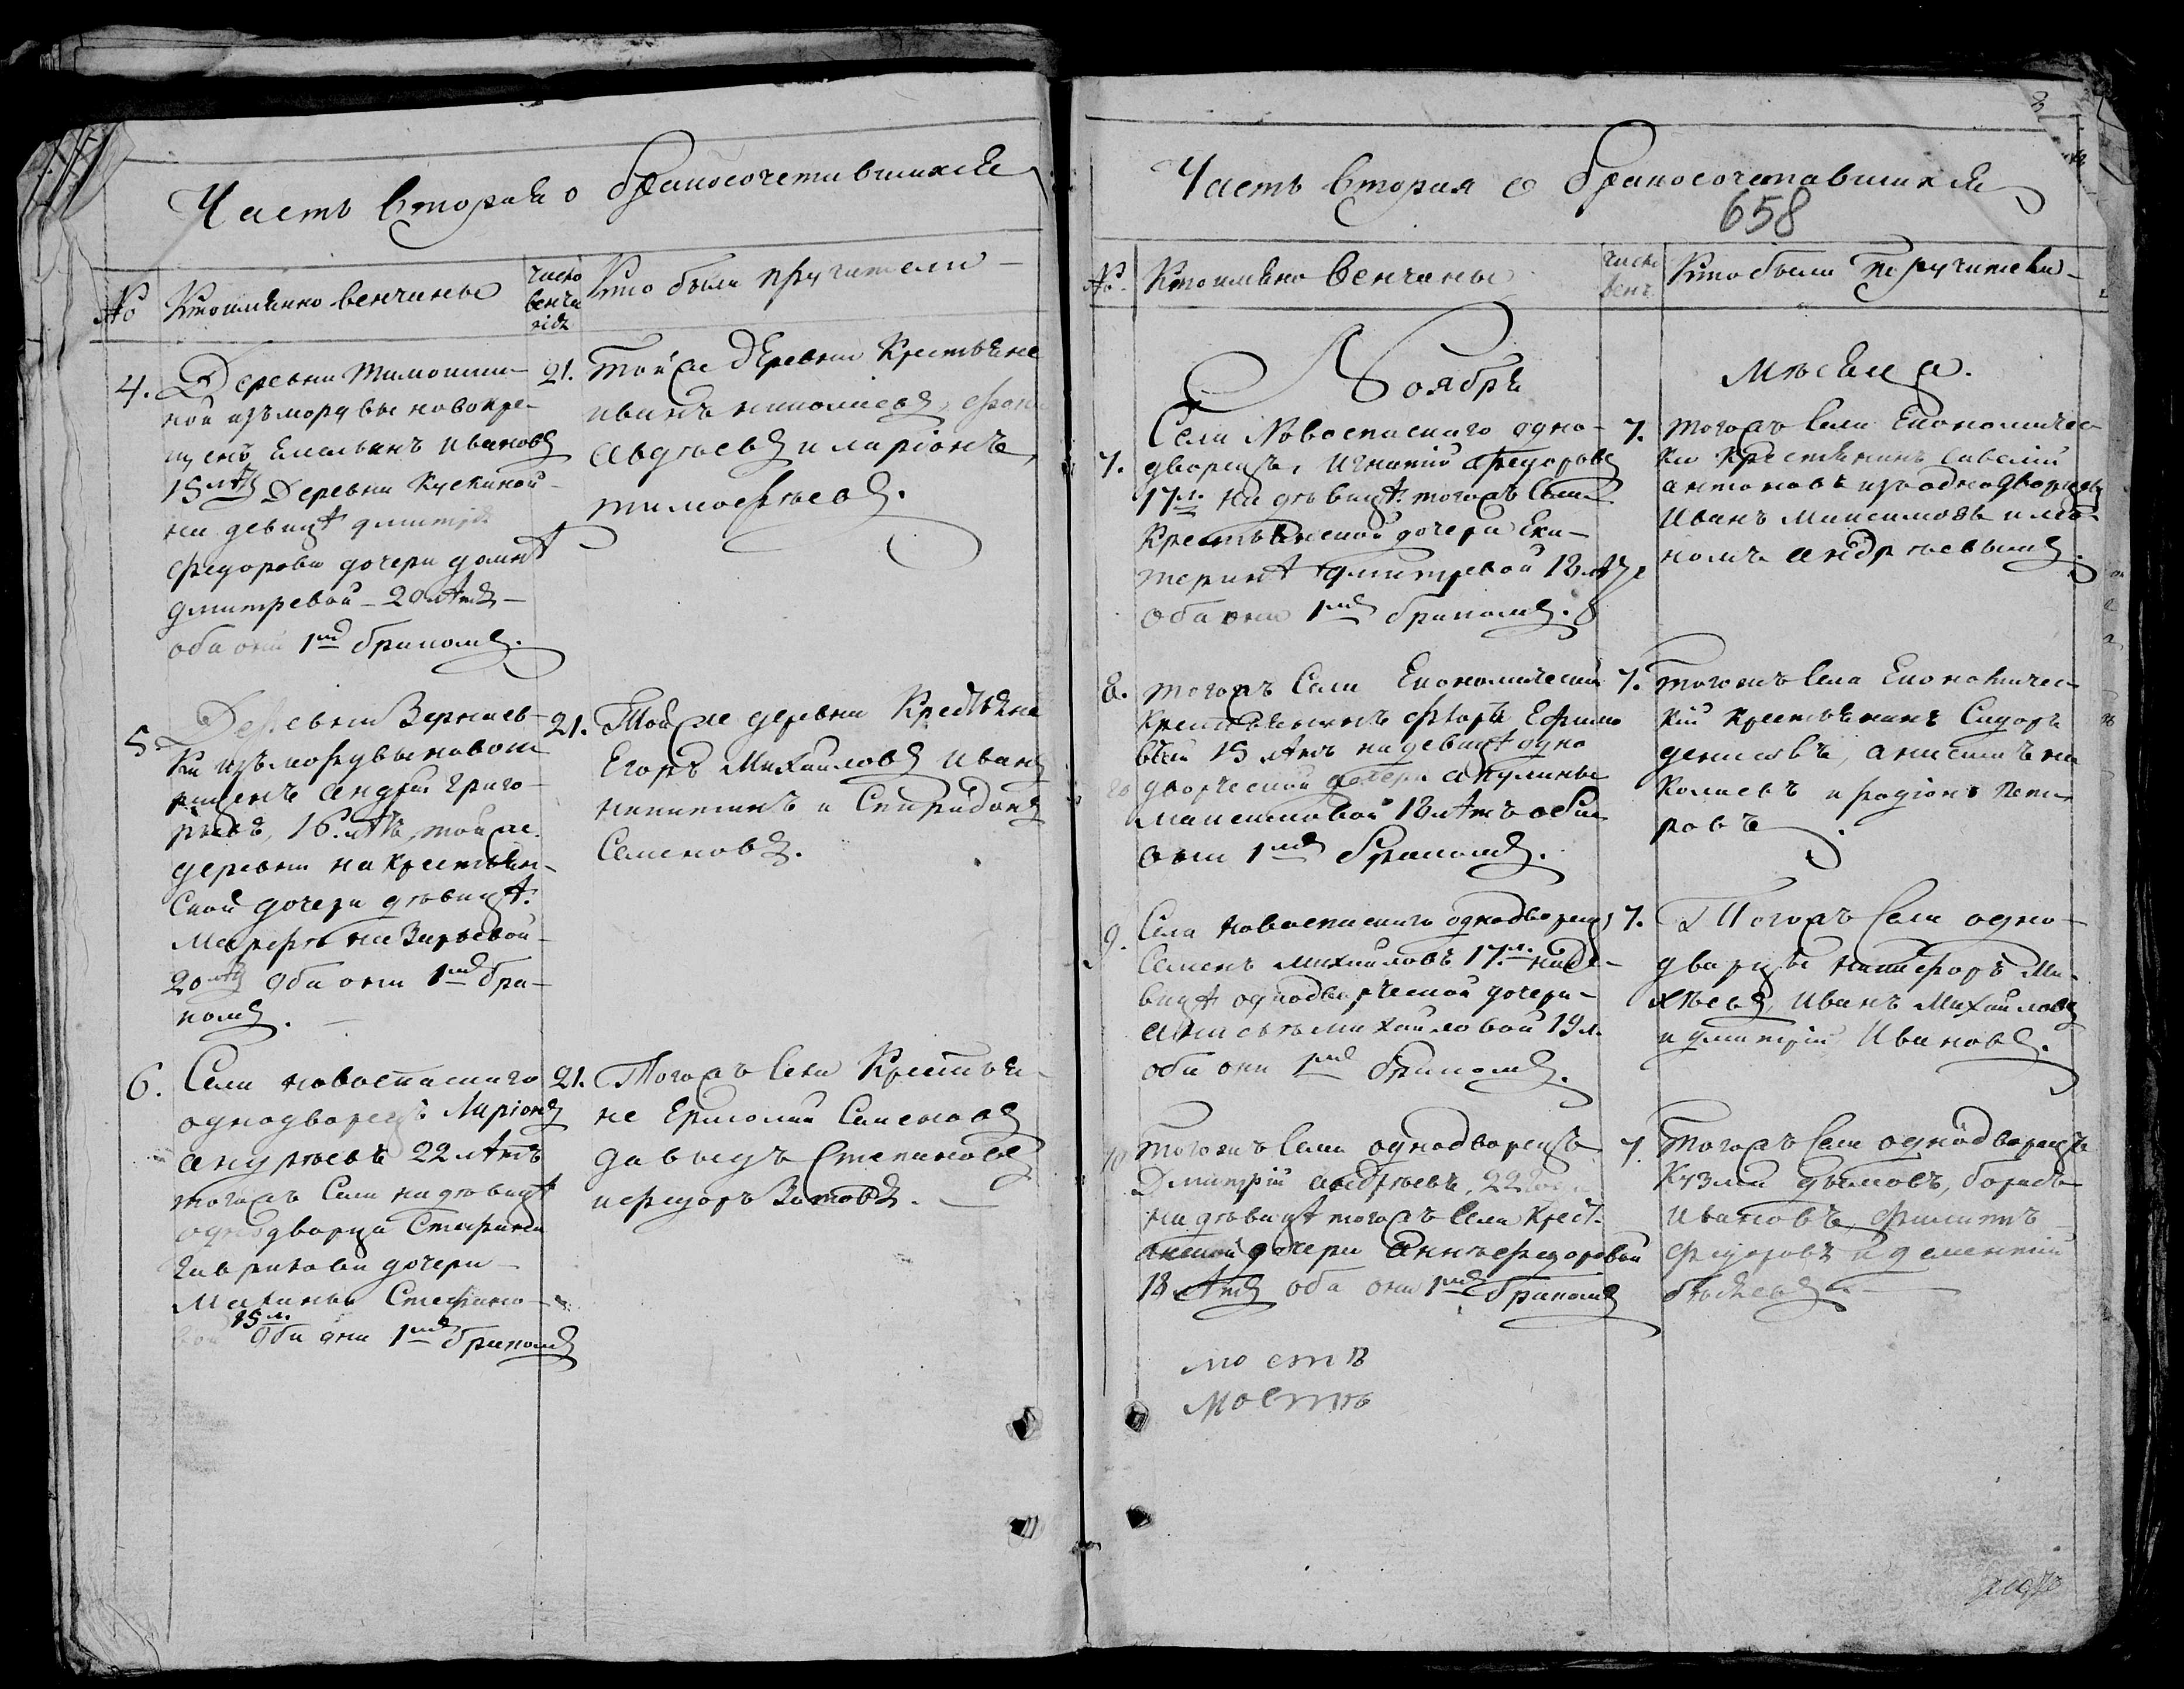 Часть вторая о бракосочетавшихся
№ Кто имянно венчаны
число венчанiя
Кто были пручители
4. Деревни Тимошки-
ной изъ мордвы новокре-
щенъ Емельянъ Ивановъ
15 лѣтъ Деревни Кускиной
на девицѣ дмитрiя
федорова дочери домнѣ
дмитревой 20 лѣтъ
оба они 1мъ бракомъ.
21. Той же деревни Крестьяне
иванъ николаевъ,
Авдѣевъ и ларiонъ
тимофѣевъ.
5. Деревни
ки изъ мордвы новок
рещенъ андрей григо-
рьевъ, 16. лѣтъ, той же
деревни на крестьян-
ской дочери дѣвицѣ
Марфѣ
20 лѣтъ оба они 1мъ бра-
комъ.
21. Той же деревни Крестьяне
Егоръ Михайловъ Иванъ
никитинъ и Спиридонъ
Семеновъ.
6. Села новоспаского
однодворецъ Ларiонъ
андреевъ 22 лѣтъ
тогожъ села на дѣвицѣ
однодворца Стефана
гаврилова дочери
Стефано-
вой 15 л. оба они 1мъ бракомъ
21. Тогожъ села Крестья-
не Ермолай Семеновъ
давыдъ Степановъ
и федоръ Зотовъ.
Часть вторая о бракосочетавшихся
658
№ Кто имянно венчаны
число венч.
Кто были поручители
Ноябрь мѣсяца.
7. Села Новоспаского одно-
дворецъ, Игнатiй федоровъ
17 л. на дѣвицѣ тогожъ села
Крестьянской дочери Ека-
теринѣ дмитревой 18 лѣтъ
оба они 1мъ бракомъ.
7. тогожъ села Економичес-
ки крестьянинъ савелiй
антоновъ изъ однодворцовъ
Иванъ Максимовъ и
андрѣевымъ.
8. тогожъ села Економически
крестьянинъ Ефимо
въ 15 лѣтъ на девицѣ одно
дворческой дочери акулины
максимовой 18 лѣтъ оба
они 1мъ бракомъ.
7. тогожъ села Економичес-
кiй крестьянинъ Сидоръ
денисовъ, анисимъ ни
колаевъ и родiонъ пет
ровъ
9. Села новоспаского однодворецъ
Семенъ михайловъ 17. л. на де-
вицѣ однодворческой дочери
михайловой 19 л.
оба они 1мъ бракомъ.
7. Тогожъ села одно-
дворцы никифоръ Ми-
хѣевъ, Иванъ Михайловъ
и дмитрiй Ивановъ.
10. тогожъ села однодворецъ
Дмитрiй андрѣевъ, 22
на дѣвицѣ тогожъ села крест.
янской дочери аннѣ федоровой
18 лѣтъ оба они 1мъ бракомъ
7. тогожъ села однодворцы
Кузма борисъ
Ивановъ, филипъ
федоровъ и дементiй
мость
мость